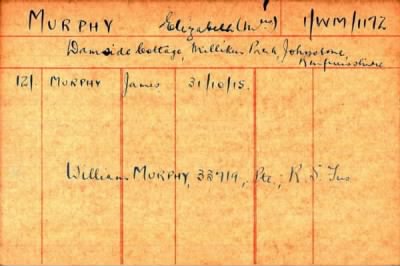 MURPHY Elizabeth (Mrs) 1/WM/1172
Damside Cottage, Milliken Park, Johnstone,
Renfrewshire
12/. MURPHY James 31/10/15.
William MURPHY, 33719, Pte., R. S. Fus